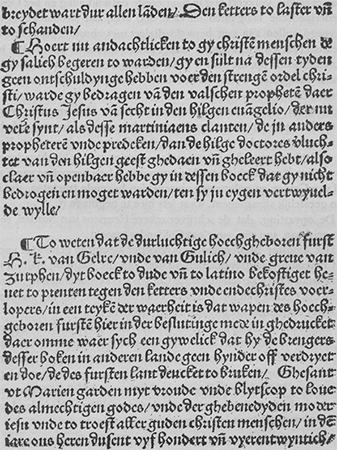 breydet wart dur allen lãden/ Den ketters to laster vñ
to schanden/
¶ Hoert nu andachtlicken to gy christẽ menschen de
gy salich begeren to warden/ gy en sült na dessen tyden
geen ontschuldynge hebben voer den strengẽ ordel chri-
sti/ warde gy bedragen vã den valschen prophetẽ daer
Christus Jesus vã secht in den hilgen euãgelio/ der nu
vele synt/ als desse martiniaens clanten/ de ju anders
propheterẽ vnde predcken/ dan de hilge doctores vluch-
ter van den hilgen geest ghedaen vñ gheleert hebt/ also
claer vñ openbaer hebbe gy in dessen boeck dat gy nicht
bedrogen en moget warden/ ten sy ju eygen vertwyuel-
de wylle/
¶ To weten dat de durluchtige hoechgheboren furst
H. K. van Gelre/ vnde van Gulich/ vnde greue van
zutphen/ dyt boeck to dudẽ vñ to latino bekostiget he-
uet to prenten tegen den ketters vnde endechristes voer-
lopers/ in een teykẽ der waerheit is dat wapen des hoech-
geboren furstẽ hier in der besluntinge mede in ghedrucket
daer omme waer sych een gywelick dat hy de brengers
desser boken in anderen lande geen hynder off verdryet
en doe/ de des fursten lant deucket to bruken/ Ghesant
vt Marien garden myt vroude vnde blytscop to loue
des almechtigen godes/ vnde der ghebenedyden moder
jesu vnde to troest aller guden christen menschen/ in dẽ
iare ons heren dusent vyf hondert vñ vyerentwyntich/